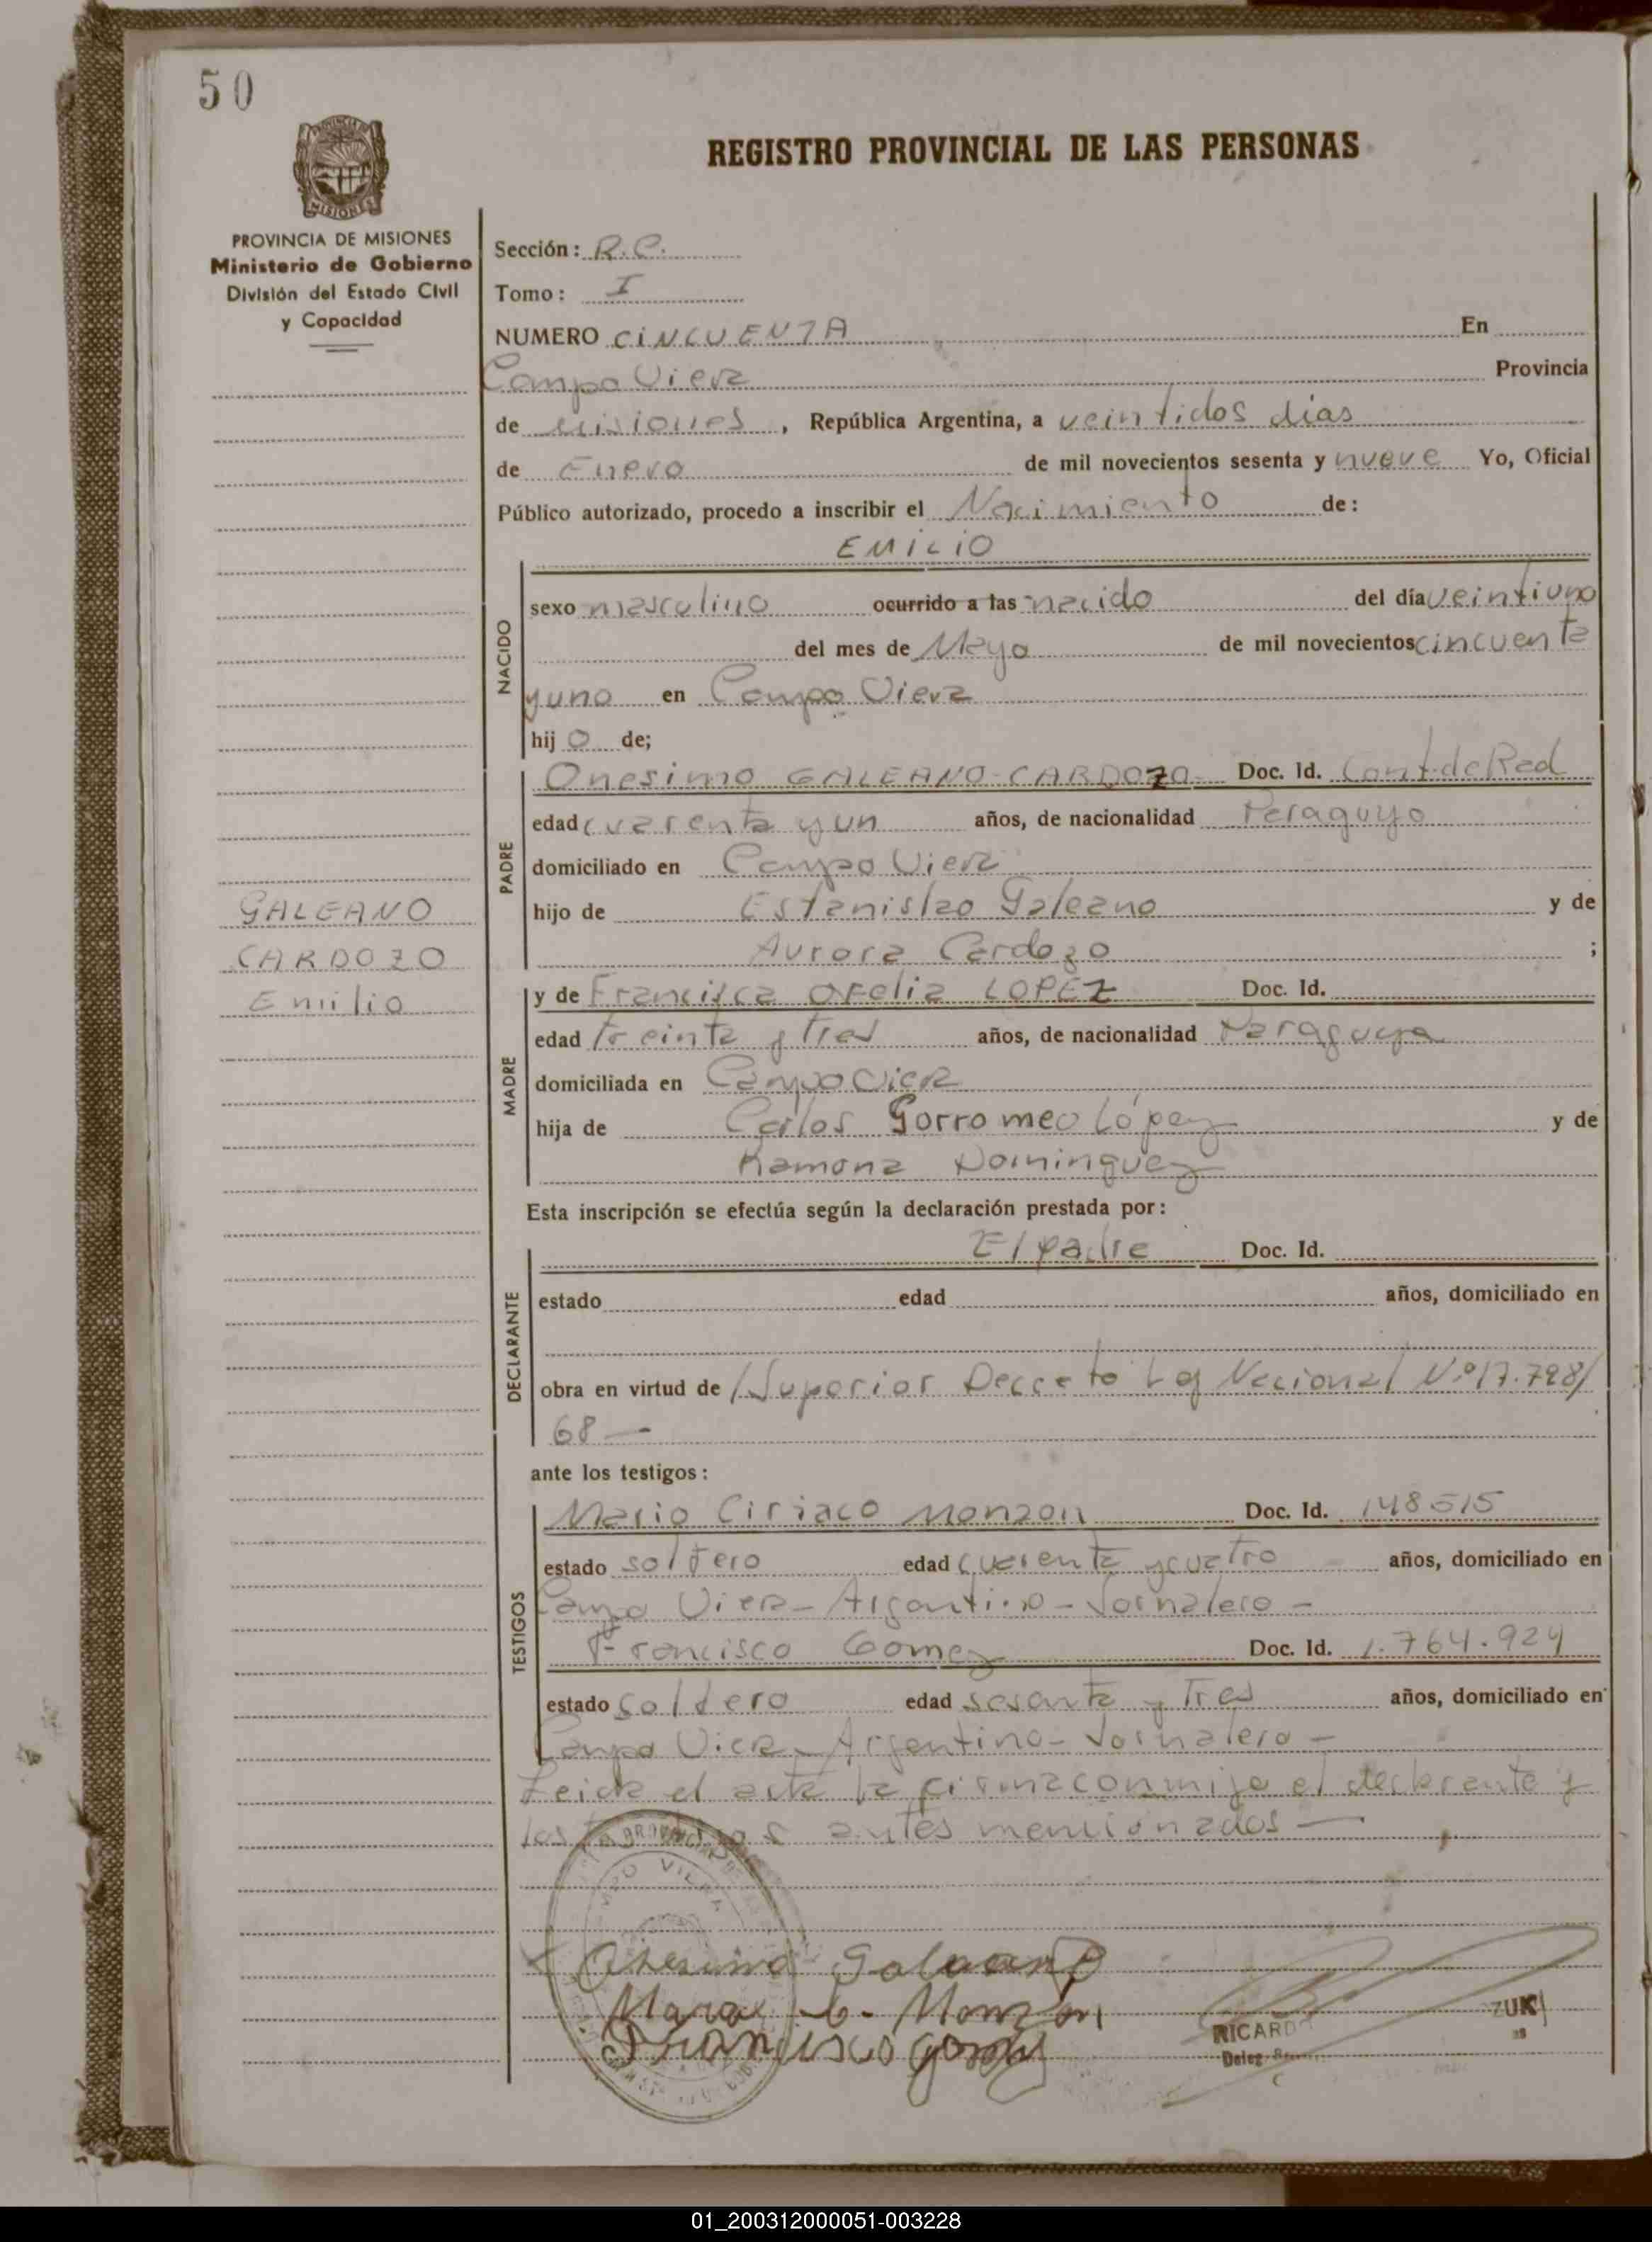 50
REGISTRO PROVINCIAL DE LAS PERSONAS
MISIONES
PROVINCIA DE MISIONES
Ministerio de Gobierno
División del Estado Civil
y Capacidad
Sección: R.C.
Tomo: I
NUMERO CINCUENTA En
Campo Viera Provincia
de Misiones, República Argentina, a veintidos días
de Enero de mil novecientos sesenta y nueve Yo, Oficial
Público autorizado, procedo a inscribir el Nacimiento de:
EMILIO
NACIDO
sexo masculino ocurrido a las nacido del día veintiuno
del mes de Mayo de mil novecientos cincuenta
y uno en Campo Viera
hijo de;
PADRE
Onesimo GALEANO-CARDOZO Doc. Id. Cont. de Rad
edad cuarenta y un años, de nacionalidad Paraguyo
domiciliado en Campo Viera
hijo de Estanislao Galeano y de
Aurora Cardozo ;
GALEANO
CARDOZO
Emilio
MADRE
y de Francisca OFelia LOPEZ Doc. Id.
edad treinta y tres años, de nacionalidad Paraguya
domiciliada en Campo Viera
hija de Carlos Gorromeo López y de
Ramona Dominguez
Esta inscripción se efectúa según la declaración prestada por:
DECLARANTE
El padre Doc. Id.
estado edad años, domiciliado en
obra en virtud de Superior Decreto Ley Nacional N.º 17.798/
68 —
ante los testigos:
TESTIGOS
Mario Ciriaco Monzon Doc. Id. 148515
estado soltero edad cuarenta y cuatro años, domiciliado en
Campo Viera - Argentino - Jornalero -
Francisco Gomez Doc. Id. 1.764.924
estado soltero edad sesenta y tres años, domiciliado en
Campo Viera - Argentino - Jornalero -
Leida el acta la firma conmigo el declarante y
los testigos antes mencionados —
VIERA
Onesimo Galeano
Mario C. Monzon
Francisco Gomez
RICARDO ZUK
Deleg.
01_200312000051-003228